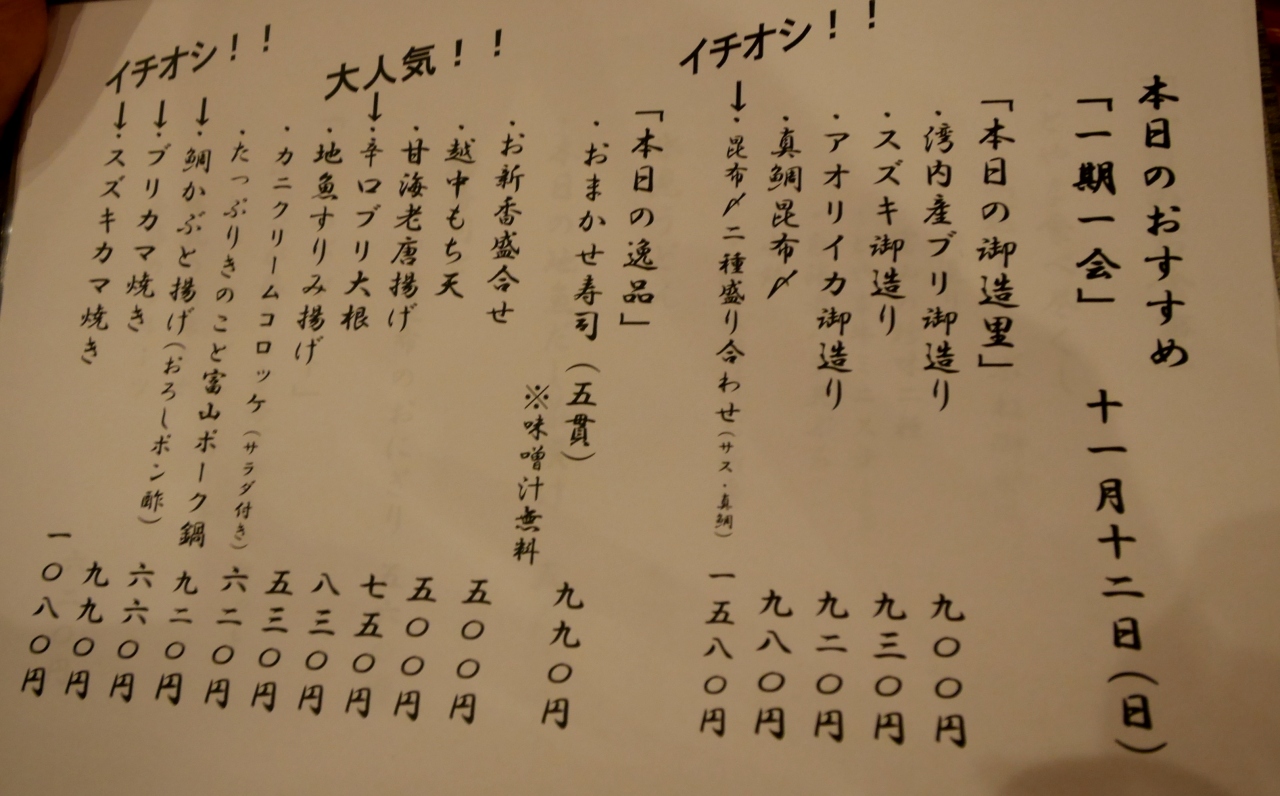 本日のおすすめ
「一期一会」 十一月十二日(日)
「本日の御造里」
・湾内産ブリ御造り 九〇〇円
・スズキ御造り 九三〇円
・アオリイカ御造り 九二〇円
・真鯛昆布〆 九八〇円
イチオシ!!
↓
・昆布〆二種盛り合わせ(サス・真鯛) 一五八〇円
「本日の逸品」
・おまかせ寿司(五貫) 九九〇円
※味噌汁無料
・お新香盛合せ 五〇〇円
・越中もち天 五〇〇円
・甘海老唐揚げ 七五〇円
大人気!!
↓
・辛口ブリ大根 八三〇円
・地魚すりみ揚げ 五三〇円
・カニクリームコロッケ(サラダ付き) 六二〇円
・たっぷりきのこと富山ポーク鍋 九二〇円
イチオシ!!
↓ ↓ ↓
・鯛かぶと揚げ(おろしポン酢) 六六〇円
・ブリカマ焼き 九九〇円
・スズキカマ焼き 一〇八〇円